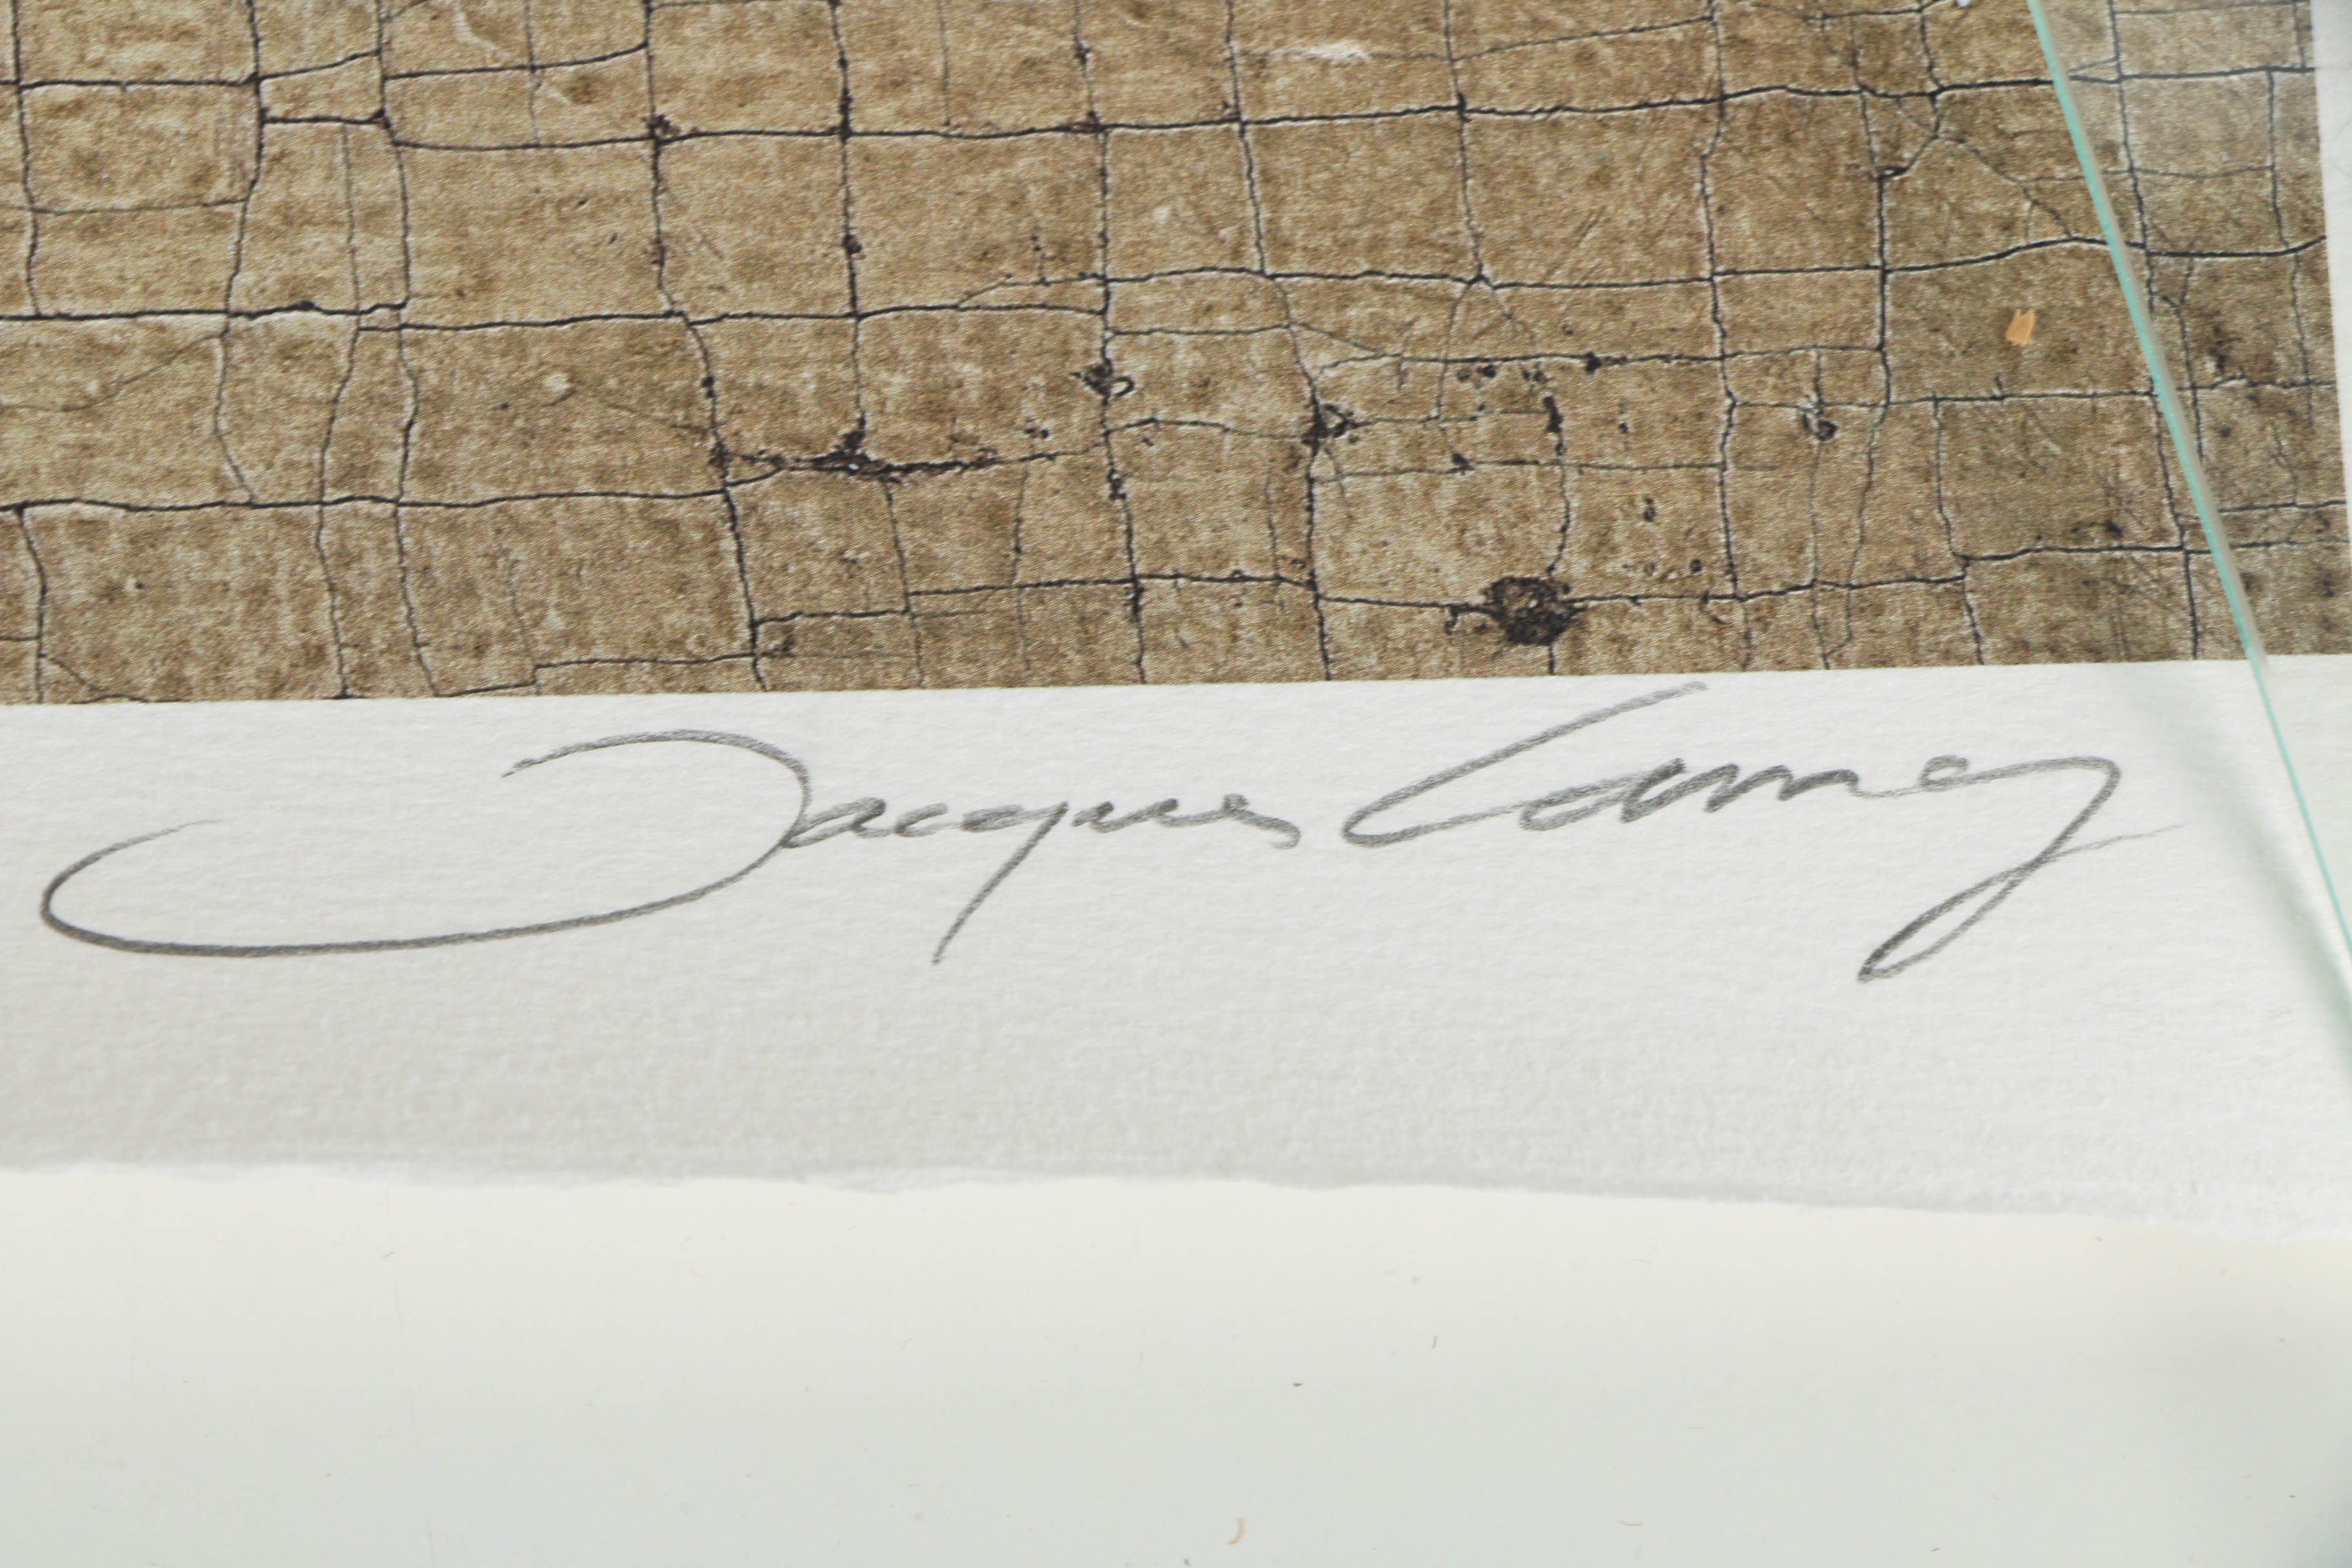 Jacques Lamy